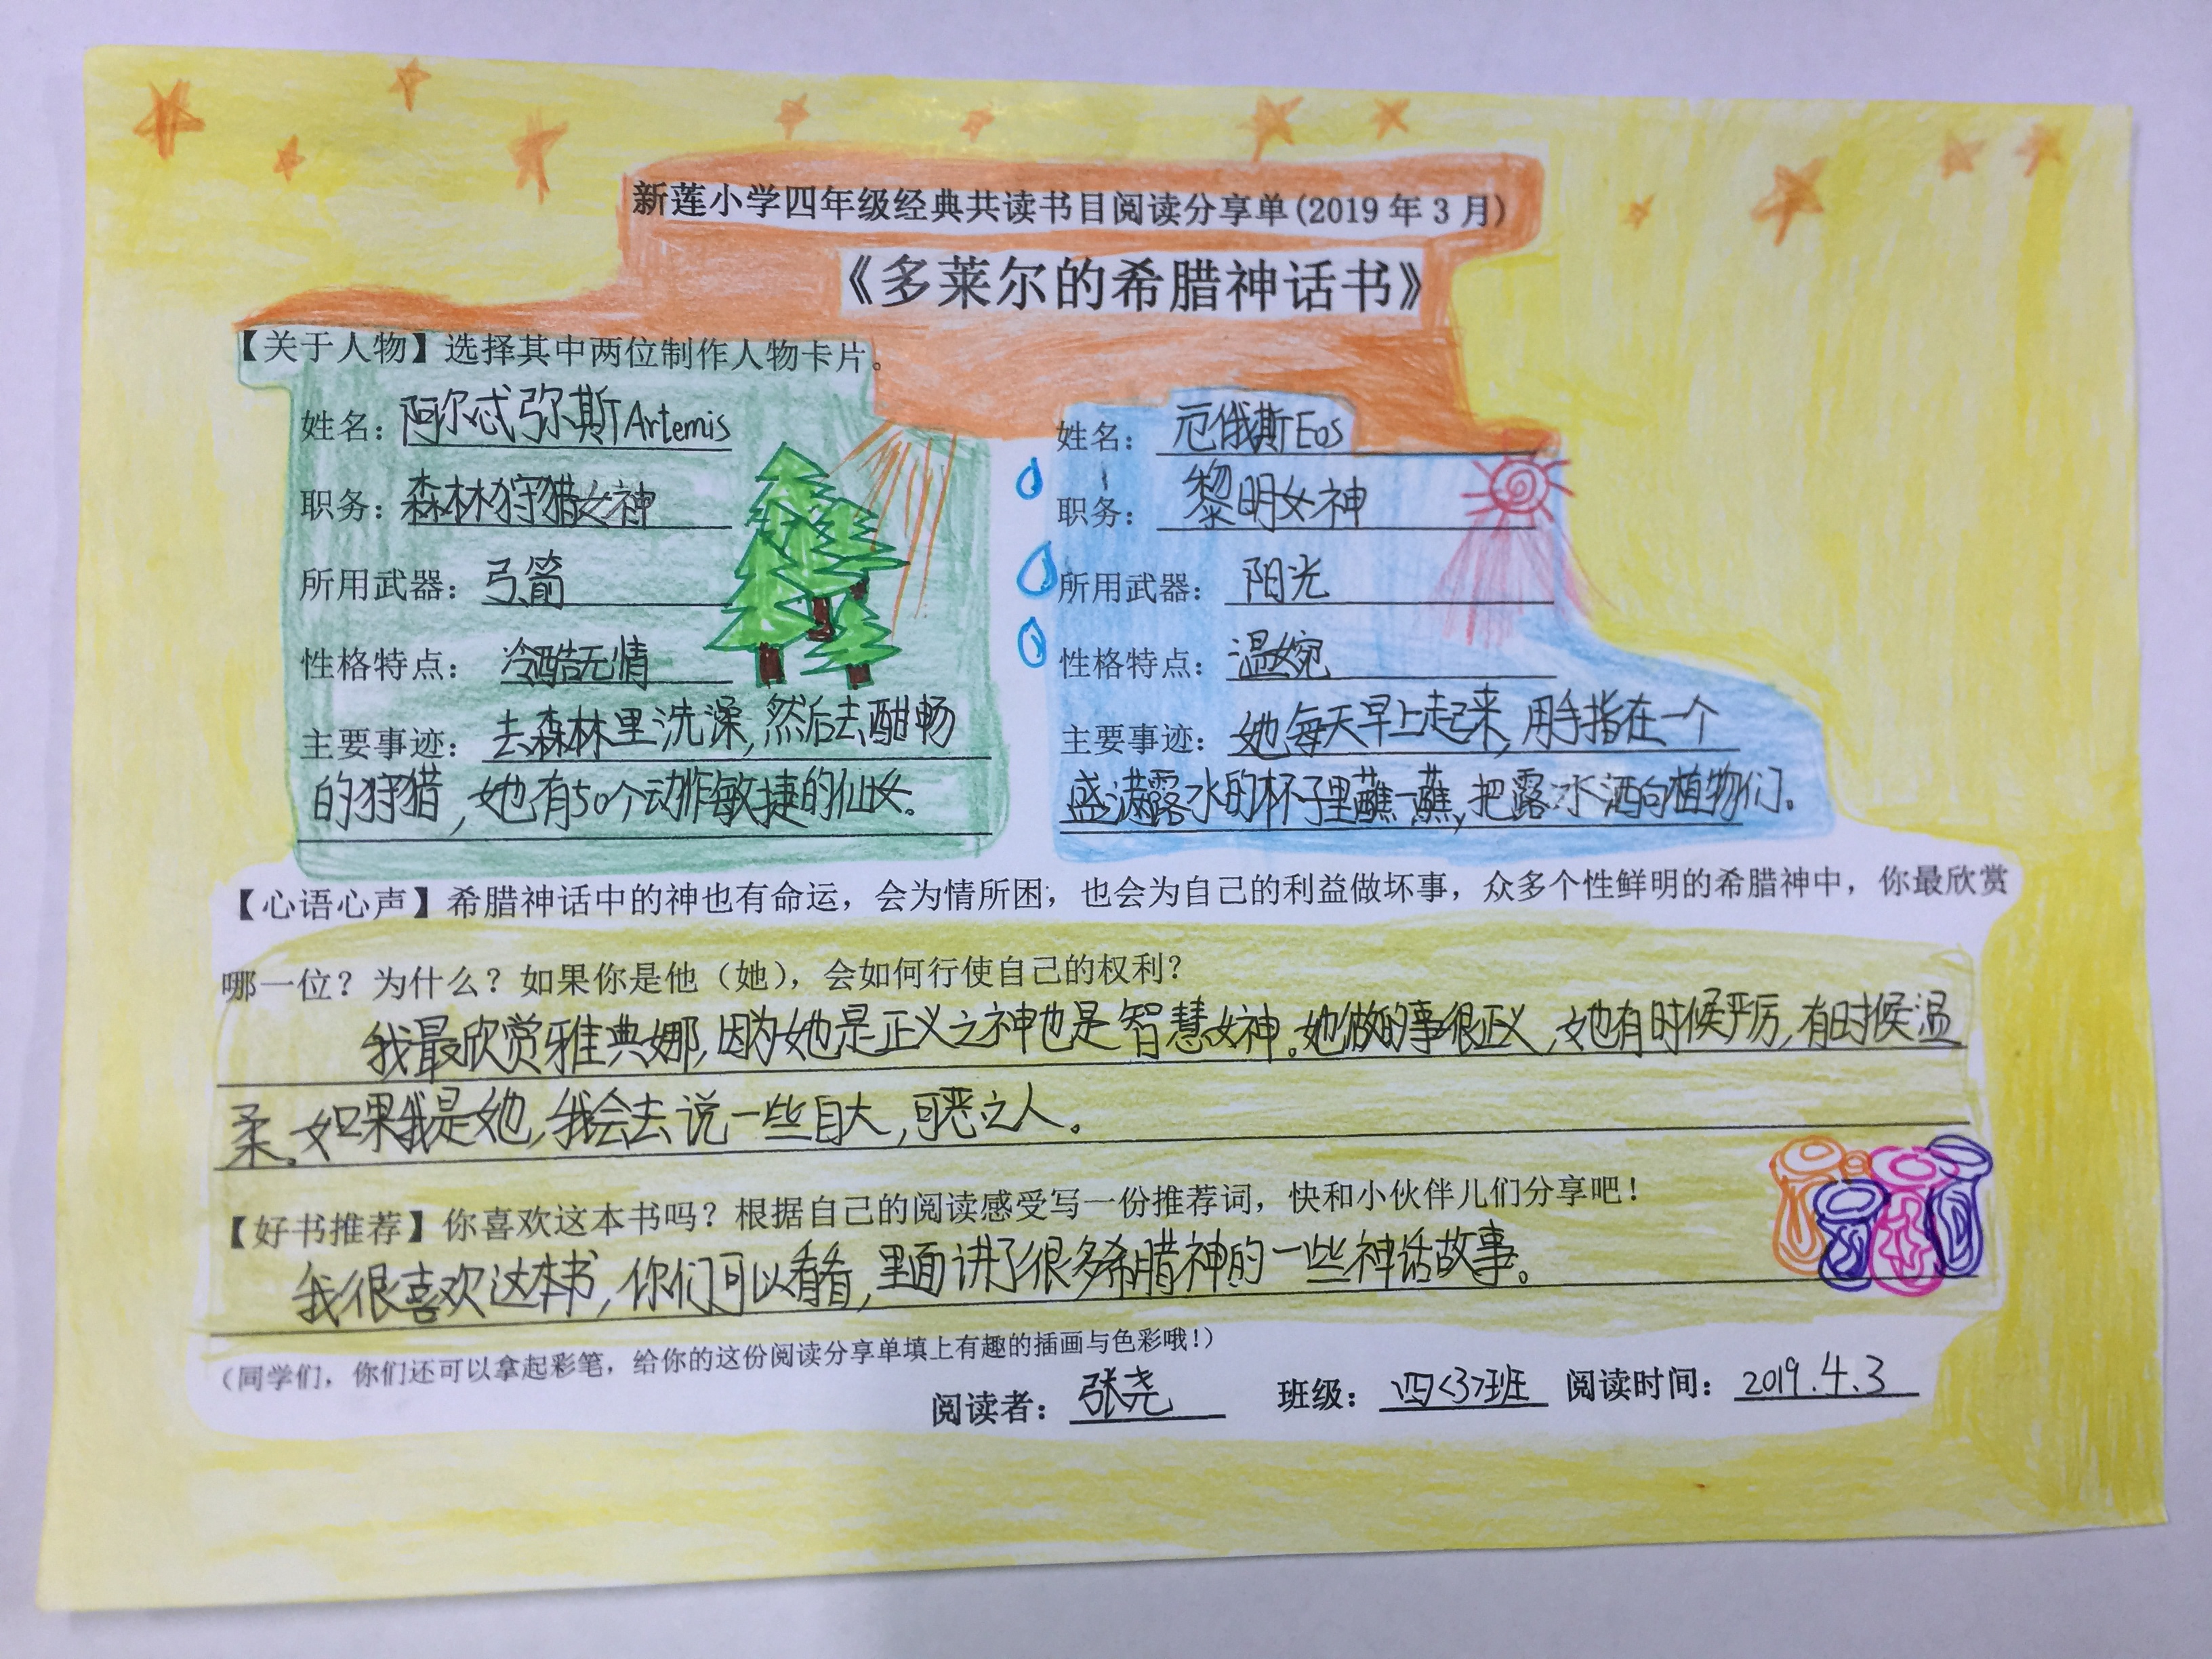 新莲小学四年级经典共读书目阅读分享单(2019 年 3 月)
《多莱尔的希腊神话书》
【关于人物】选择其中两位制作人物卡片。
姓名：阿尔忒弥斯Artemis
职务：森林狩猎女神
所用武器：弓箭
性格特点：冷酷无情
主要事迹：去森林里洗澡,然后去酣畅
的狩猎,她有50个动作敏捷的仙女。
姓名：厄俄斯Eos
职务：黎明女神
所用武器：阳光
性格特点：温婉
主要事迹：她每天早上起来,用手指在一个
盛满露水的杯子里蘸一蘸,把露水洒向植物们。
【心语心声】希腊神话中的神也有命运，会为情所困，也会为自己的利益做坏事，众多个性鲜明的希腊神中，你最欣赏
哪一位？为什么？如果你是他（她），会如何行使自己的权利？
我最欣赏雅典娜,因为她是正义之神也是智慧女神。她做的事很正义,她有时候严厉,有时候温
柔。如果我是她,我会去说一些自大,可恶之人。
【好书推荐】你喜欢这本书吗？根据自己的阅读感受写一份推荐词，快和小伙伴儿们分享吧！
我很喜欢这本书,你们可以看看,里面讲了很多希腊神的一些神话故事。
（同学们，你们还可以拿起彩笔，给你的这份阅读分享单填上有趣的插画与色彩哦！）
阅读者：张尧 班级：四<3>班 阅读时间：2019.4.3